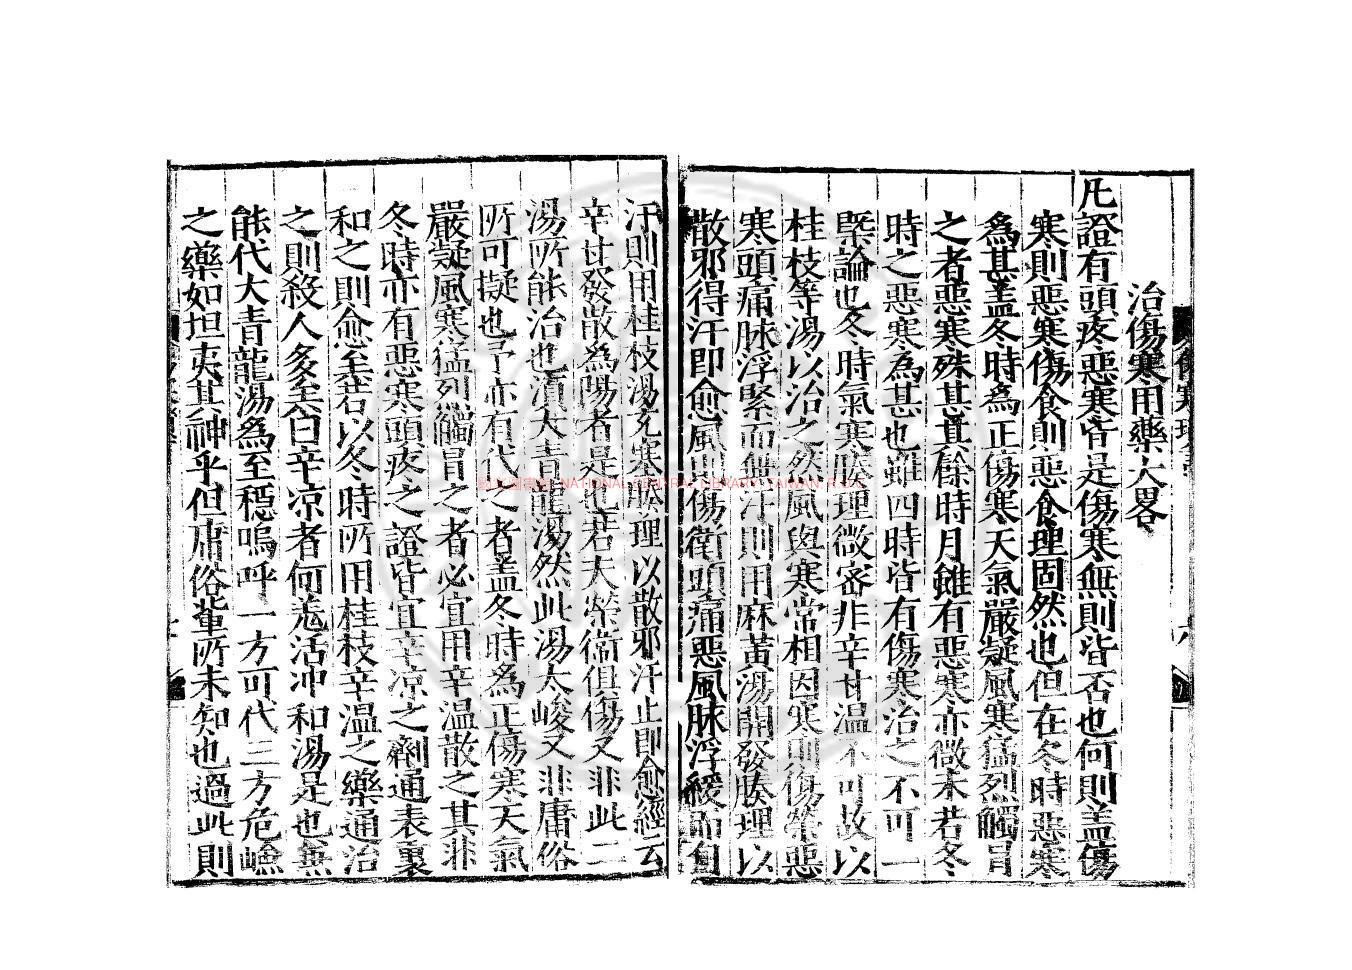 治傷寒用藥大畧
凡證有頭疼惡寒皆是傷寒無則皆否也何則盖傷
寒則惡寒傷食則惡食理固然也但在冬時惡寒
為甚盖冬時為正傷寒天氣嚴凝風寒猛烈觸冒
之者惡寒殊甚其餘時月雖有惡寒亦微未若冬
時之惡寒為甚也雖四時皆有傷寒治之不可一
槩論也冬時氣寒腠理微密非辛甘温不可故以
桂枝等湯以治之然風與寒常相因寒則傷榮惡
寒頭痛脉浮緊而無汗則用麻黃湯開發腠理以
散邪得汗即愈風則傷衛頭痛惡風脉浮緩而自
汗則用桂枝湯充塞腠理以散邪汗止即愈經云
辛甘發散為陽者是也若夫榮衛俱傷又非此二
湯所能治也須大青龍湯然此湯太峻又非庸俗
所可擬也予亦有代之者盖冬時為正傷寒天氣
嚴凝風寒猛烈觸冒之者必宜用辛温散之其非
冬時亦有惡寒頭疼之證皆宜辛凉之劑通表裏
和之則愈至若以冬時所用桂枝辛温之藥通治
之則殺人多矣曰辛凉者何羗活冲和湯是也兼
能代大青龍湯為至穩嗚呼一方可代三方危嶮
之藥如坦夷其神乎但庸俗輩所未知也過此則
NATIONAL CENTRAL LIBRARY, TAIWAN, R.O.C.